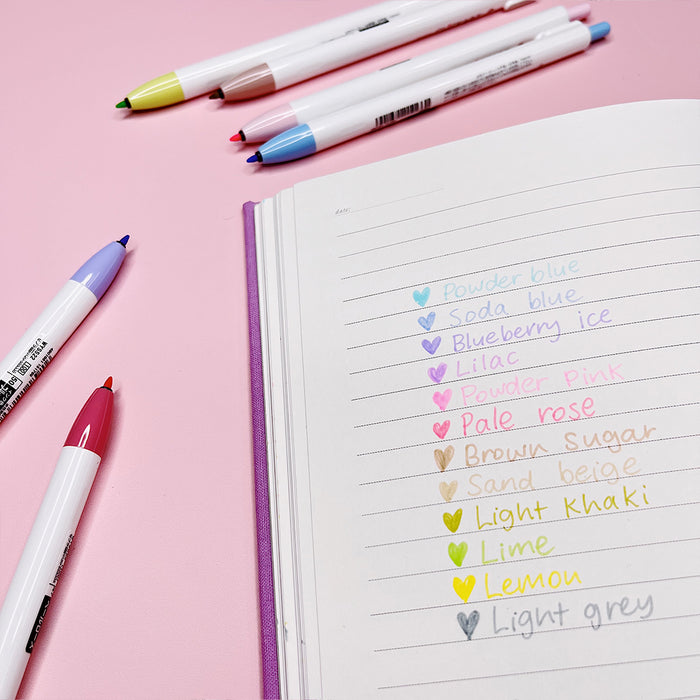 Powder blue
Soda blue
Blueberry ice
Lilac
Powder pink
Pale rose
Brown Sugar
Sand beige
Light Khaki
Lime
Lemon
Light grey